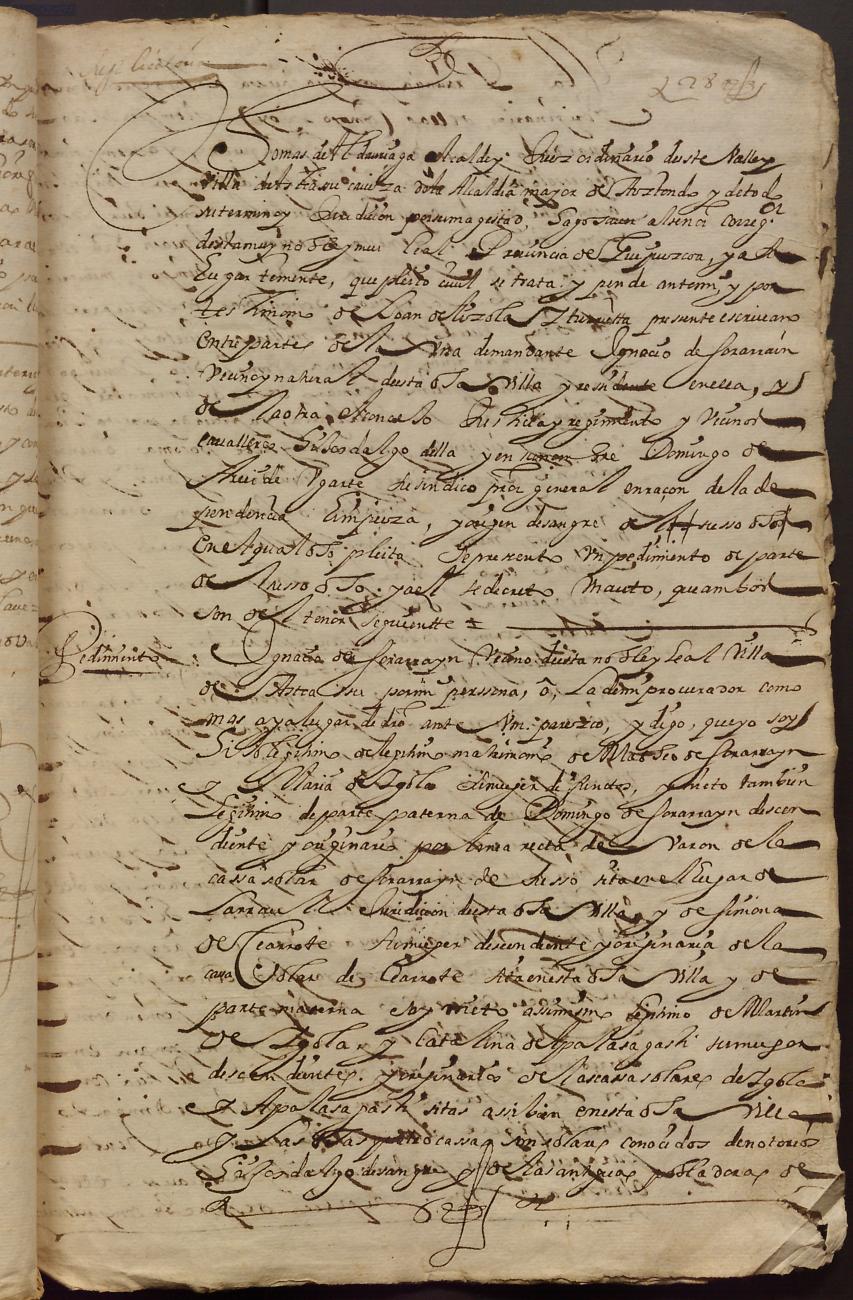 Thomas de Aldaniaga Alcalde y Juez ordinario deste Valle y
Villa de y su cauiza dola Alcaldia mayor de Aiztondo y de todo
su termino y Juridicion por su magestad, hago sauer al señor correg.or
desta muy noble y muy leal Prouincia de Guipuzcoa, y a su
lugar teniente, que pleito ciuil se trata y pende antemi, y por
testimonio de Joan de presente escriuano
Entre partes de la Una demandante Ignacio de Sorarrain
Vecino y natural desta dha Villa y residente en ella, y
de la otra el concejo Justicia y regimiento y Vecinos
caualleros hijosdalgo della y en su nombre Domingo de
Ugarte su sindico pror general en raçon de la de
pendencia limpieza, y origen de sangre del susso dho
En el qual dho pleito se presento Un pedimiento de parte
del susso dho y a el se decreto Un auto, que ambos
son del tenor siguiente =
Pedimiento
Ignacio de Sorarrayn Vecino desta noble y leal Villa
de por mi perssona, o, la de mi procurador como
mas aya lugar de dro ante Vm. parezco, y digo, que yo soy
hijo legitimo de legitimo matrimonio de Matheo de Sorarrayn
y Maria de Egola su muger difunctos, y nieto tambien
legitimo de parte paterna de Domingo de Sorarrayn descen
diente y originario por linea recta de Varon de la
cassa solar de Sorarrayn de susso sita en el lugar de
Larraul Juridicion desta dha Villa, y de Simona
de Icarrote su muger descendiente y originaria de la
cassa solar de Icarrote sita en esta dha Villa y de
parte materna soy nieto assimismo legitimo de Martin
de Egola, y Catalina de Apalasagasti su muger
descendientes, y originarios de las cassas solares de Egola
y Apalasagasti sitas assi bien en esta dha Villa
y las dhas quatro cassas son solares conocidos de notorios
hijosdalgo de sangre y de las antiguas pobladoras de